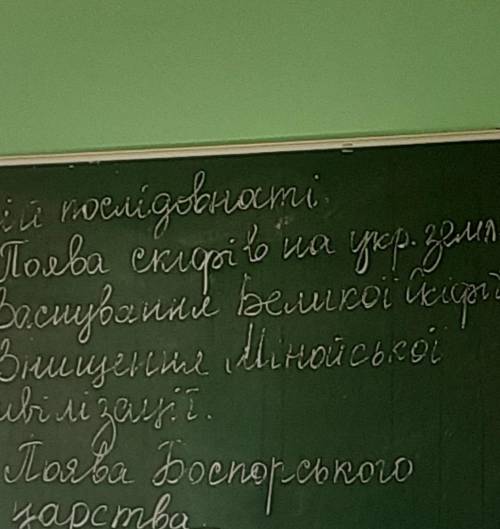 ій послідовності.
Поява скіфів на укр. земл
Заснування Великої Скіфії
Знищення Мінойської
ивілізації.
Поява Боспорського
царства